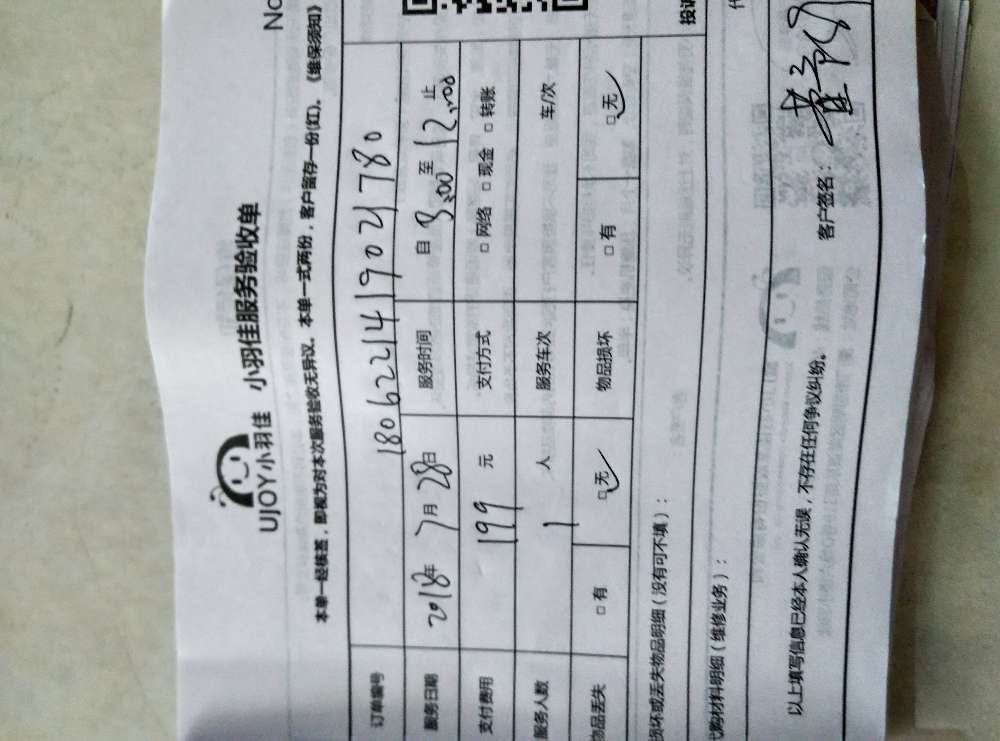 No
UJOY小羽佳 小羽佳服务验收单
本单一经核签，即视为对本次服务验收无异议。本单一式两份，客户留存一份(红)。《维保须知》
订单编号 180622141902 1780
服务日期 2018年 7月 28日 服务时间 自 3:00 至 12:00 止
支付费用 199 元 支付方式 □ 网络 □ 现金 □ 转账
服务人数 1 人 服务车次 车/次
物品丢失 □ 有 □ 无 物品损坏 □ 有 □ 无
损坏或丢失物品明细（没有可不填）：
代购材料明细（维修业务）：
以上填写信息已经本人确认无误，不存在任何争议纠纷。
客户签名：
投诉